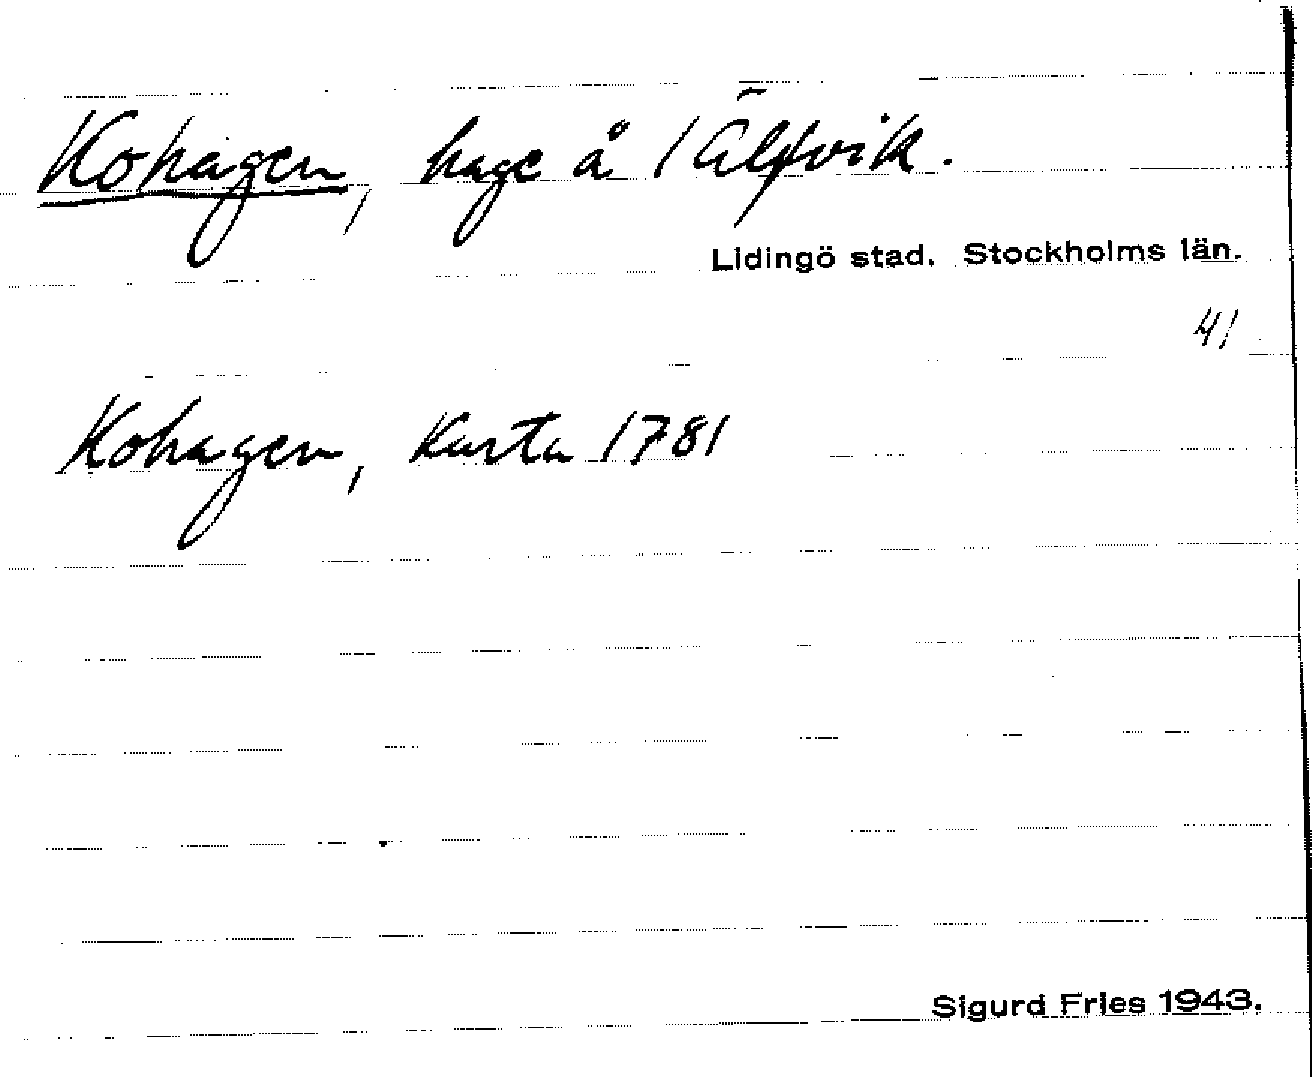 Kohagen, hage å 1 Älfvik.
Lidingö stad. Stockholms län.
41
Kohagen, Karta 1781
Sigurd Fries 1943.